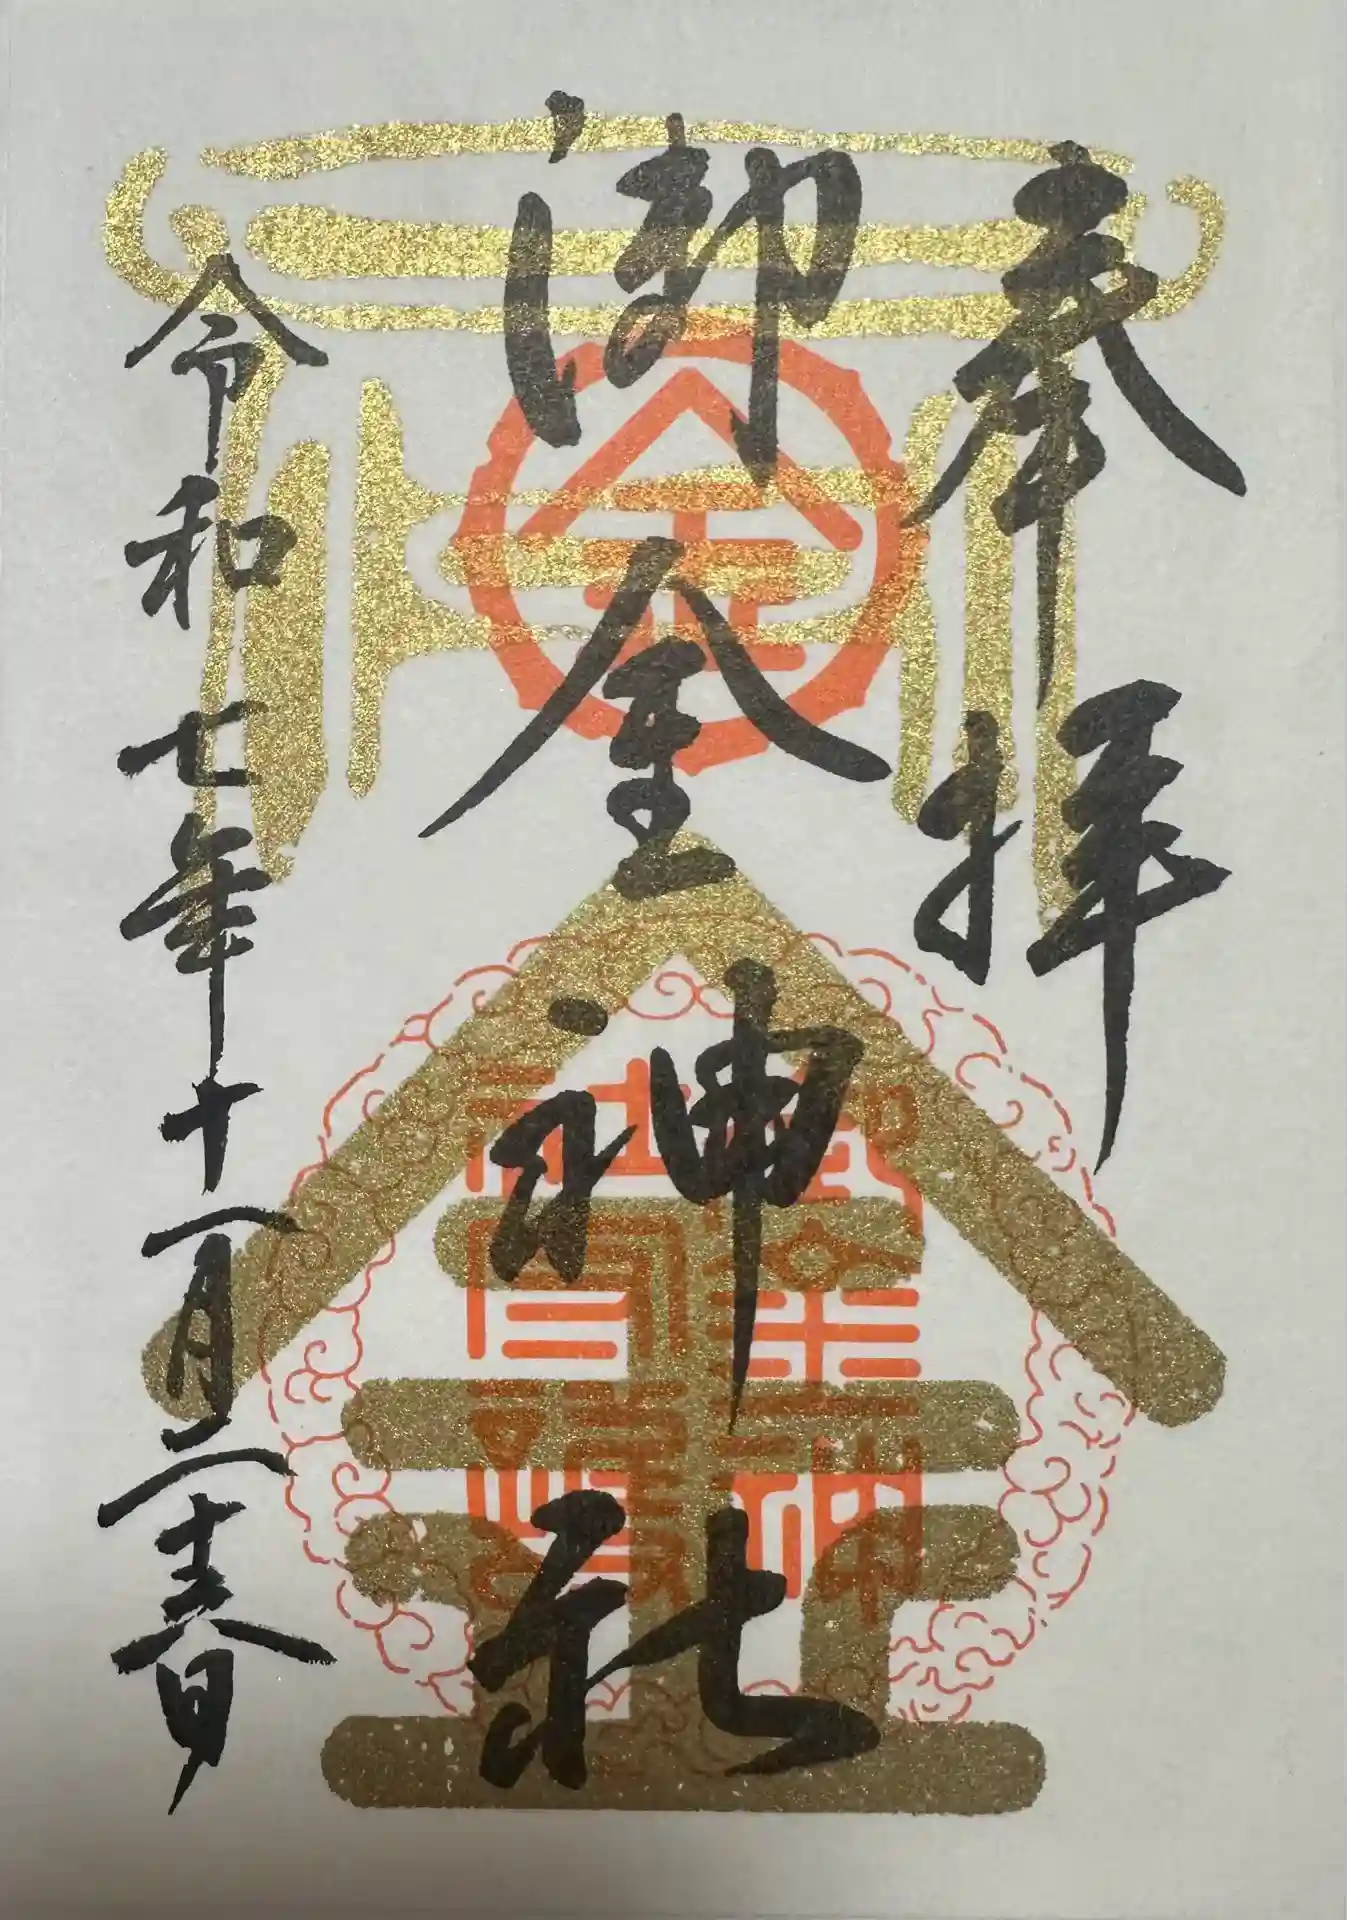 奉拝
御金神社
令和七年十一月二十日
金
御金神
社
金